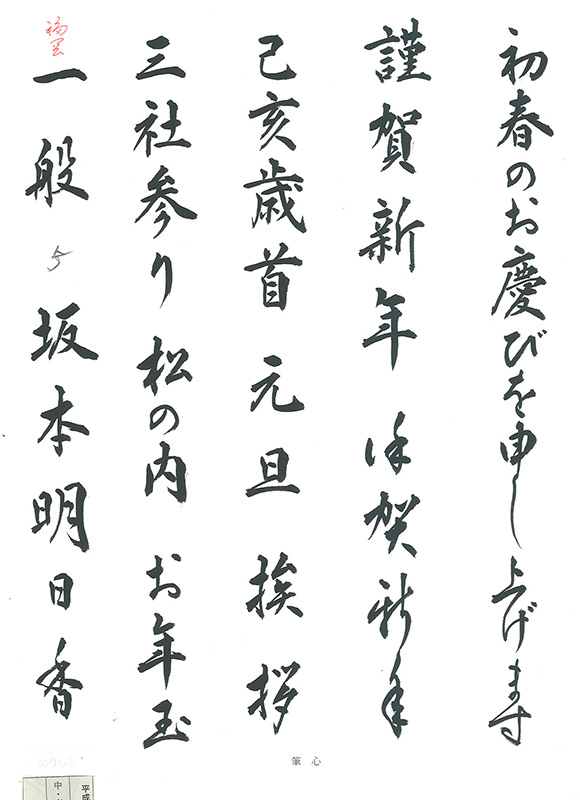 初春のお慶びを申し上げます
謹賀新年 謹賀新年
己亥歳首 元旦 挨拶
三社参り 松の内 お年玉
福岡
一般 5 坂本明日香
筆心
のりしろ
平成
中・